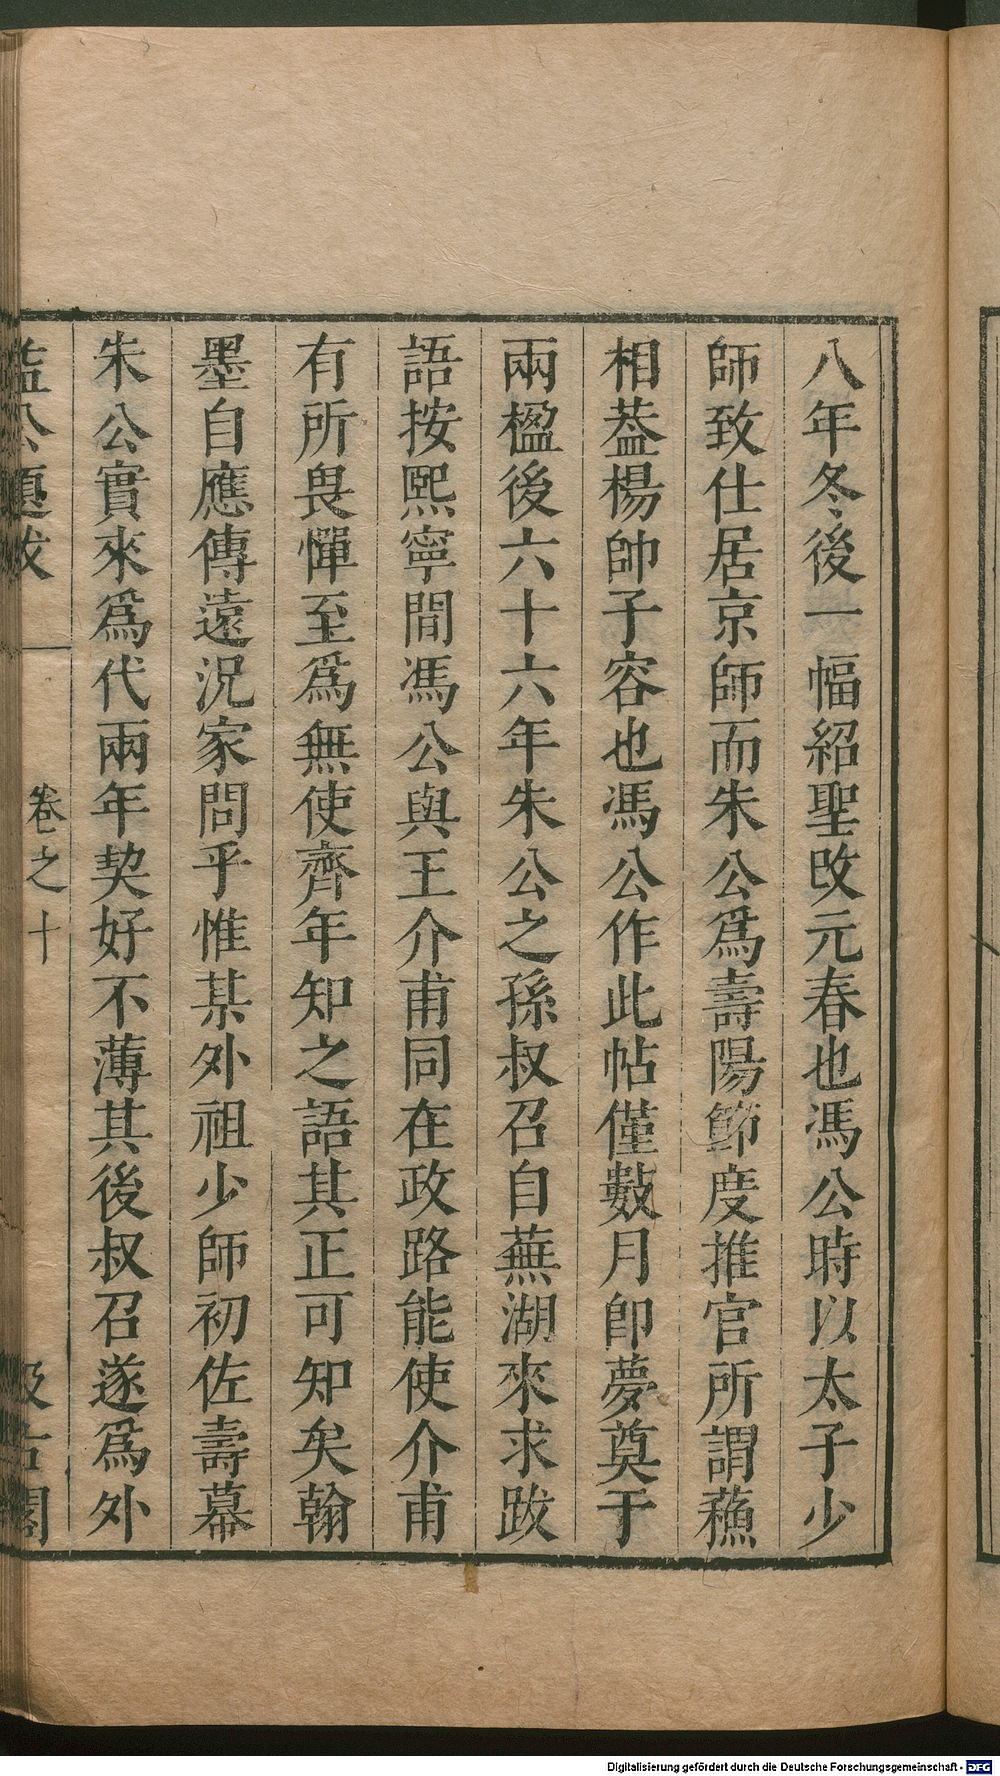 八年冬後一幅紹聖改元春也馮公時以太子少
師致仕居京師而朱公爲壽陽節度推官所謂蘓
相葢楊帥子容也馮公作此帖僅數月卽夢奠于
兩楹後六十六年朱公之孫叔召自蕪湖來求跋
語按熙寧間馮公與王介甫同在政路能使介甫
有所畏憚至爲無使齊年知之語其正可知矣翰
墨自應傳遠況家問乎惟某外祖少師初佐壽幕
朱公實來爲代兩年契好不薄其後叔召遂爲外
益公題跋 卷之十 汲古閣
Digitalisierung gefördert durch die Deutsche Forschungsgemeinschaft - DFG